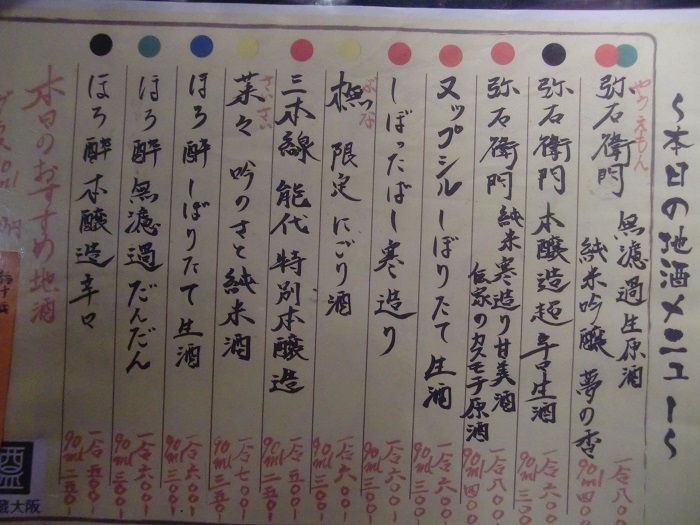 ～本日の地酒メニュー～
やうえもん
弥右衛門 無濾過生原酒
純米吟醸 夢の香
一合八〇
90ml四〇
弥右衛門 本醸造超辛口生酒
一合六〇〇-
90ml三〇〇-
弥右衛門 純米寒造り甘美酒
伝家のカスモチ原酒
一合八〇〇-
90ml四〇〇-
ヌップシル しぼりたて生酒
一合六〇〇-
90ml三〇〇-
しぼったばし寒造り
一合六〇〇-
90ml三〇〇-
ぶな
橅 限定にごり酒
一合六〇〇-
90ml三〇〇-
三本線 能代 特別本醸造
一合五〇〇-
90ml二五〇-
菜々 吟のさと純米酒
一合七〇〇-
90ml三五〇-
ほろ酔 しぼりたて生酒
一合六〇〇-
90ml三〇〇-
ほろ酔 無濾過だんだん
一合六〇〇-
90ml三〇〇-
ほろ酔 本醸造辛口
一合五〇〇-
90ml二五〇-
本日のおすすめ地酒
蔵大阪